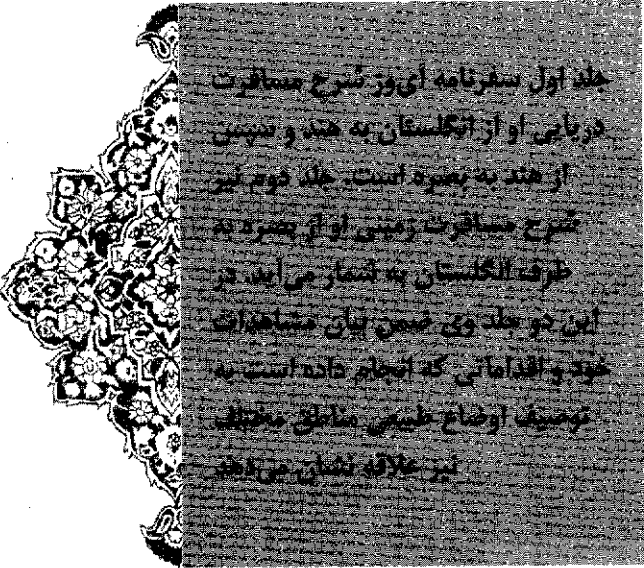 جلد اول سفرنامه آی‌وز شرح مسافرت
دریایی او از انگلستان به هند و سپس
از هند به بصره است. جلد دوم نیز
شرح مسافرت زمینی او از بصره به
طرف انگلستان به شمار می‌آید. در
این دو جلد وی ضمن بیان مشاهدات
خود و اقداماتی که انجام داده است به
توصیف اوضاع طبیعی مناطق مختلف
نیز علاقه نشان می‌دهد